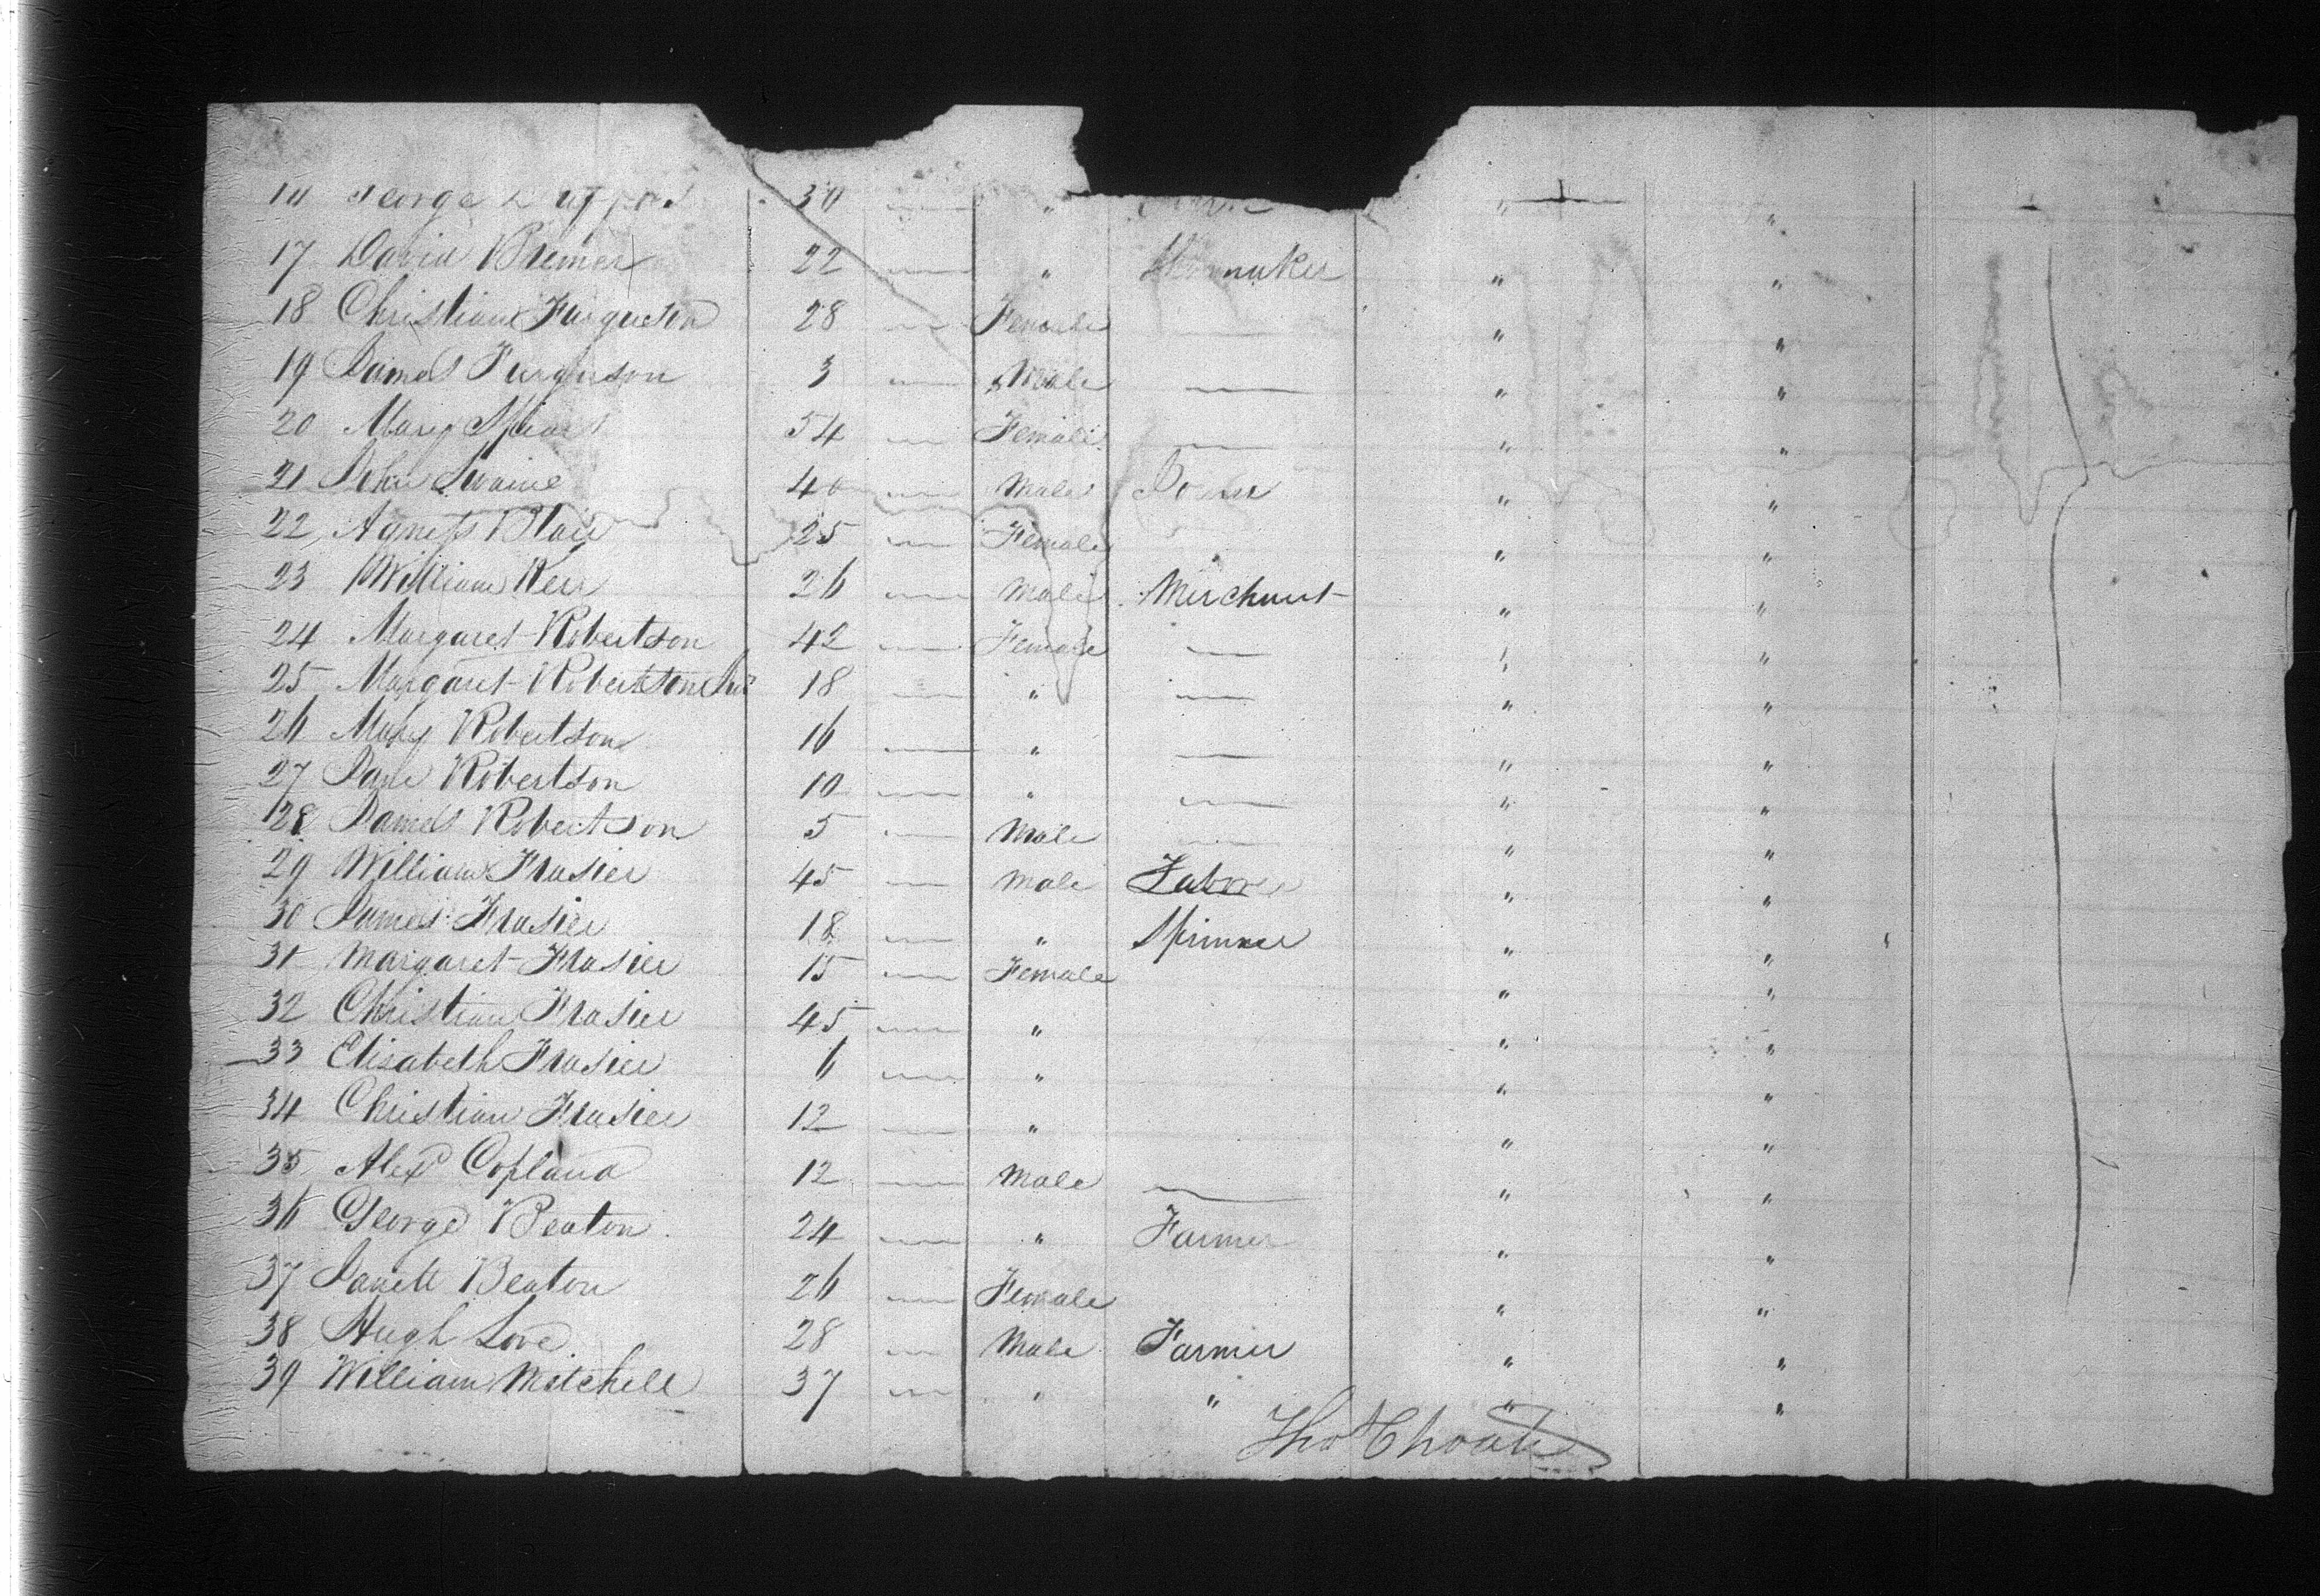 George 30 — "  "  "
17 David Bremer 22 — " Shoemaker "  "
18 Christian Furguson 28 — Female — "  "
19 James Furguson 3 — Male — "  "
20 Mary Spiers 54 — Female — "  "
21 John Swaine 40 — Male "  "
22 Agness Blair 25 — Female "  "
23 William Kerr 26 — Male Merchant "  "
24 Margaret Robertson 42 — Female — "  "
25 Margaret Robertson Jur 18 — " — "  "
26 Mary Robertson 16 — " — "  "
27 Jane Robertson 10 — " — "  "
28 James Robertson 5 — Male — "  "
29 William Frasier 45 — Male Labor "  "
30 James Frasier 18 — " Spinner "  "
31 Margaret Frasier 15 — Female "  "
32 Christian Frasier 45 — " "  "
33 Elisabeth Frasier 6 — " "  "
34 Christian Frasier 12 — " "  "
35 Alexr Copland 12 — Male — "  "
36 George Beaton 24 — " Farmer "  "
37 Janett Beaton 26 — Female "  "
38 Hugh Love 28 — Male Farmer "  "
39 William Mitchell 37 — " " "  "
Tho Choate